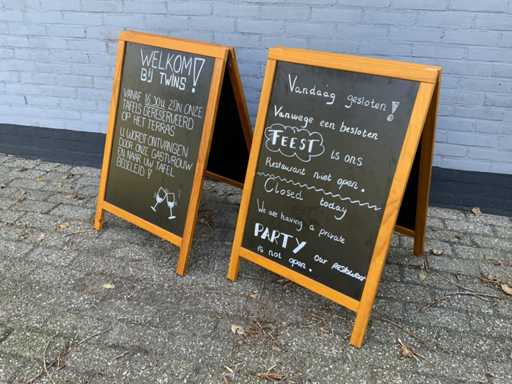 WELKOM!
BIJ TWINS
VANAF 16.30U ZIJN ONZE
TAFELS GERESERVEERD
OP HET TERRAS
U WORDT ONTVANGEN
DOOR ONZE GASTVROUW
EN NAAR UW TAFEL
BEGELEID!
Vandaag gesloten!
Vanwege een besloten
FEEST is ons
Restaurant niet open.
Closed today
We are having a private
PARTY Our restaurant
is not open.